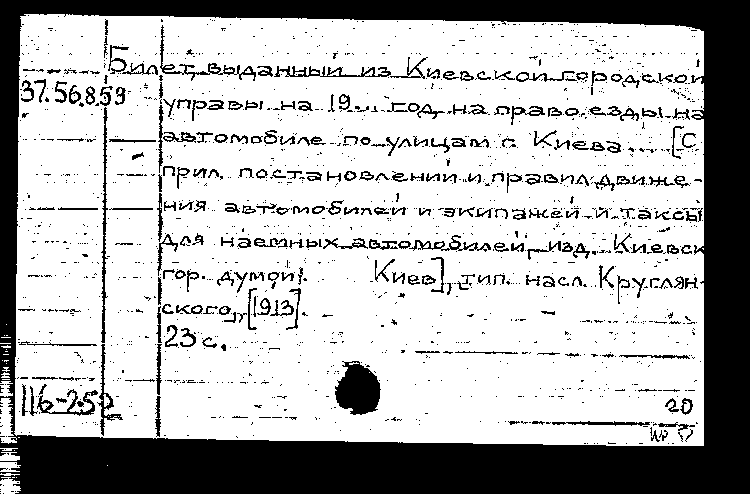 Билет, выданный из Киевской городской
37.56.859
управы на 19... год, на право езды на
автомобиле по улицам г. Киева... [С
прил. постановлений и правил движе-
ния автомобилей и экипажей и таксы
для наемных автомобилей, изд. Киевск
гор. думой]. Киев], тип. насл. Круглян-
ского, [1913].
23 с.
116-2.52
20